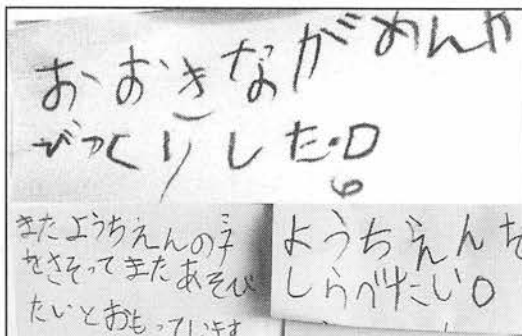 おおきながめんや
びっくりした。
また ようちえんの子
をさそって また あそび
たいとおもっています
ようちえんを
しらべたい。